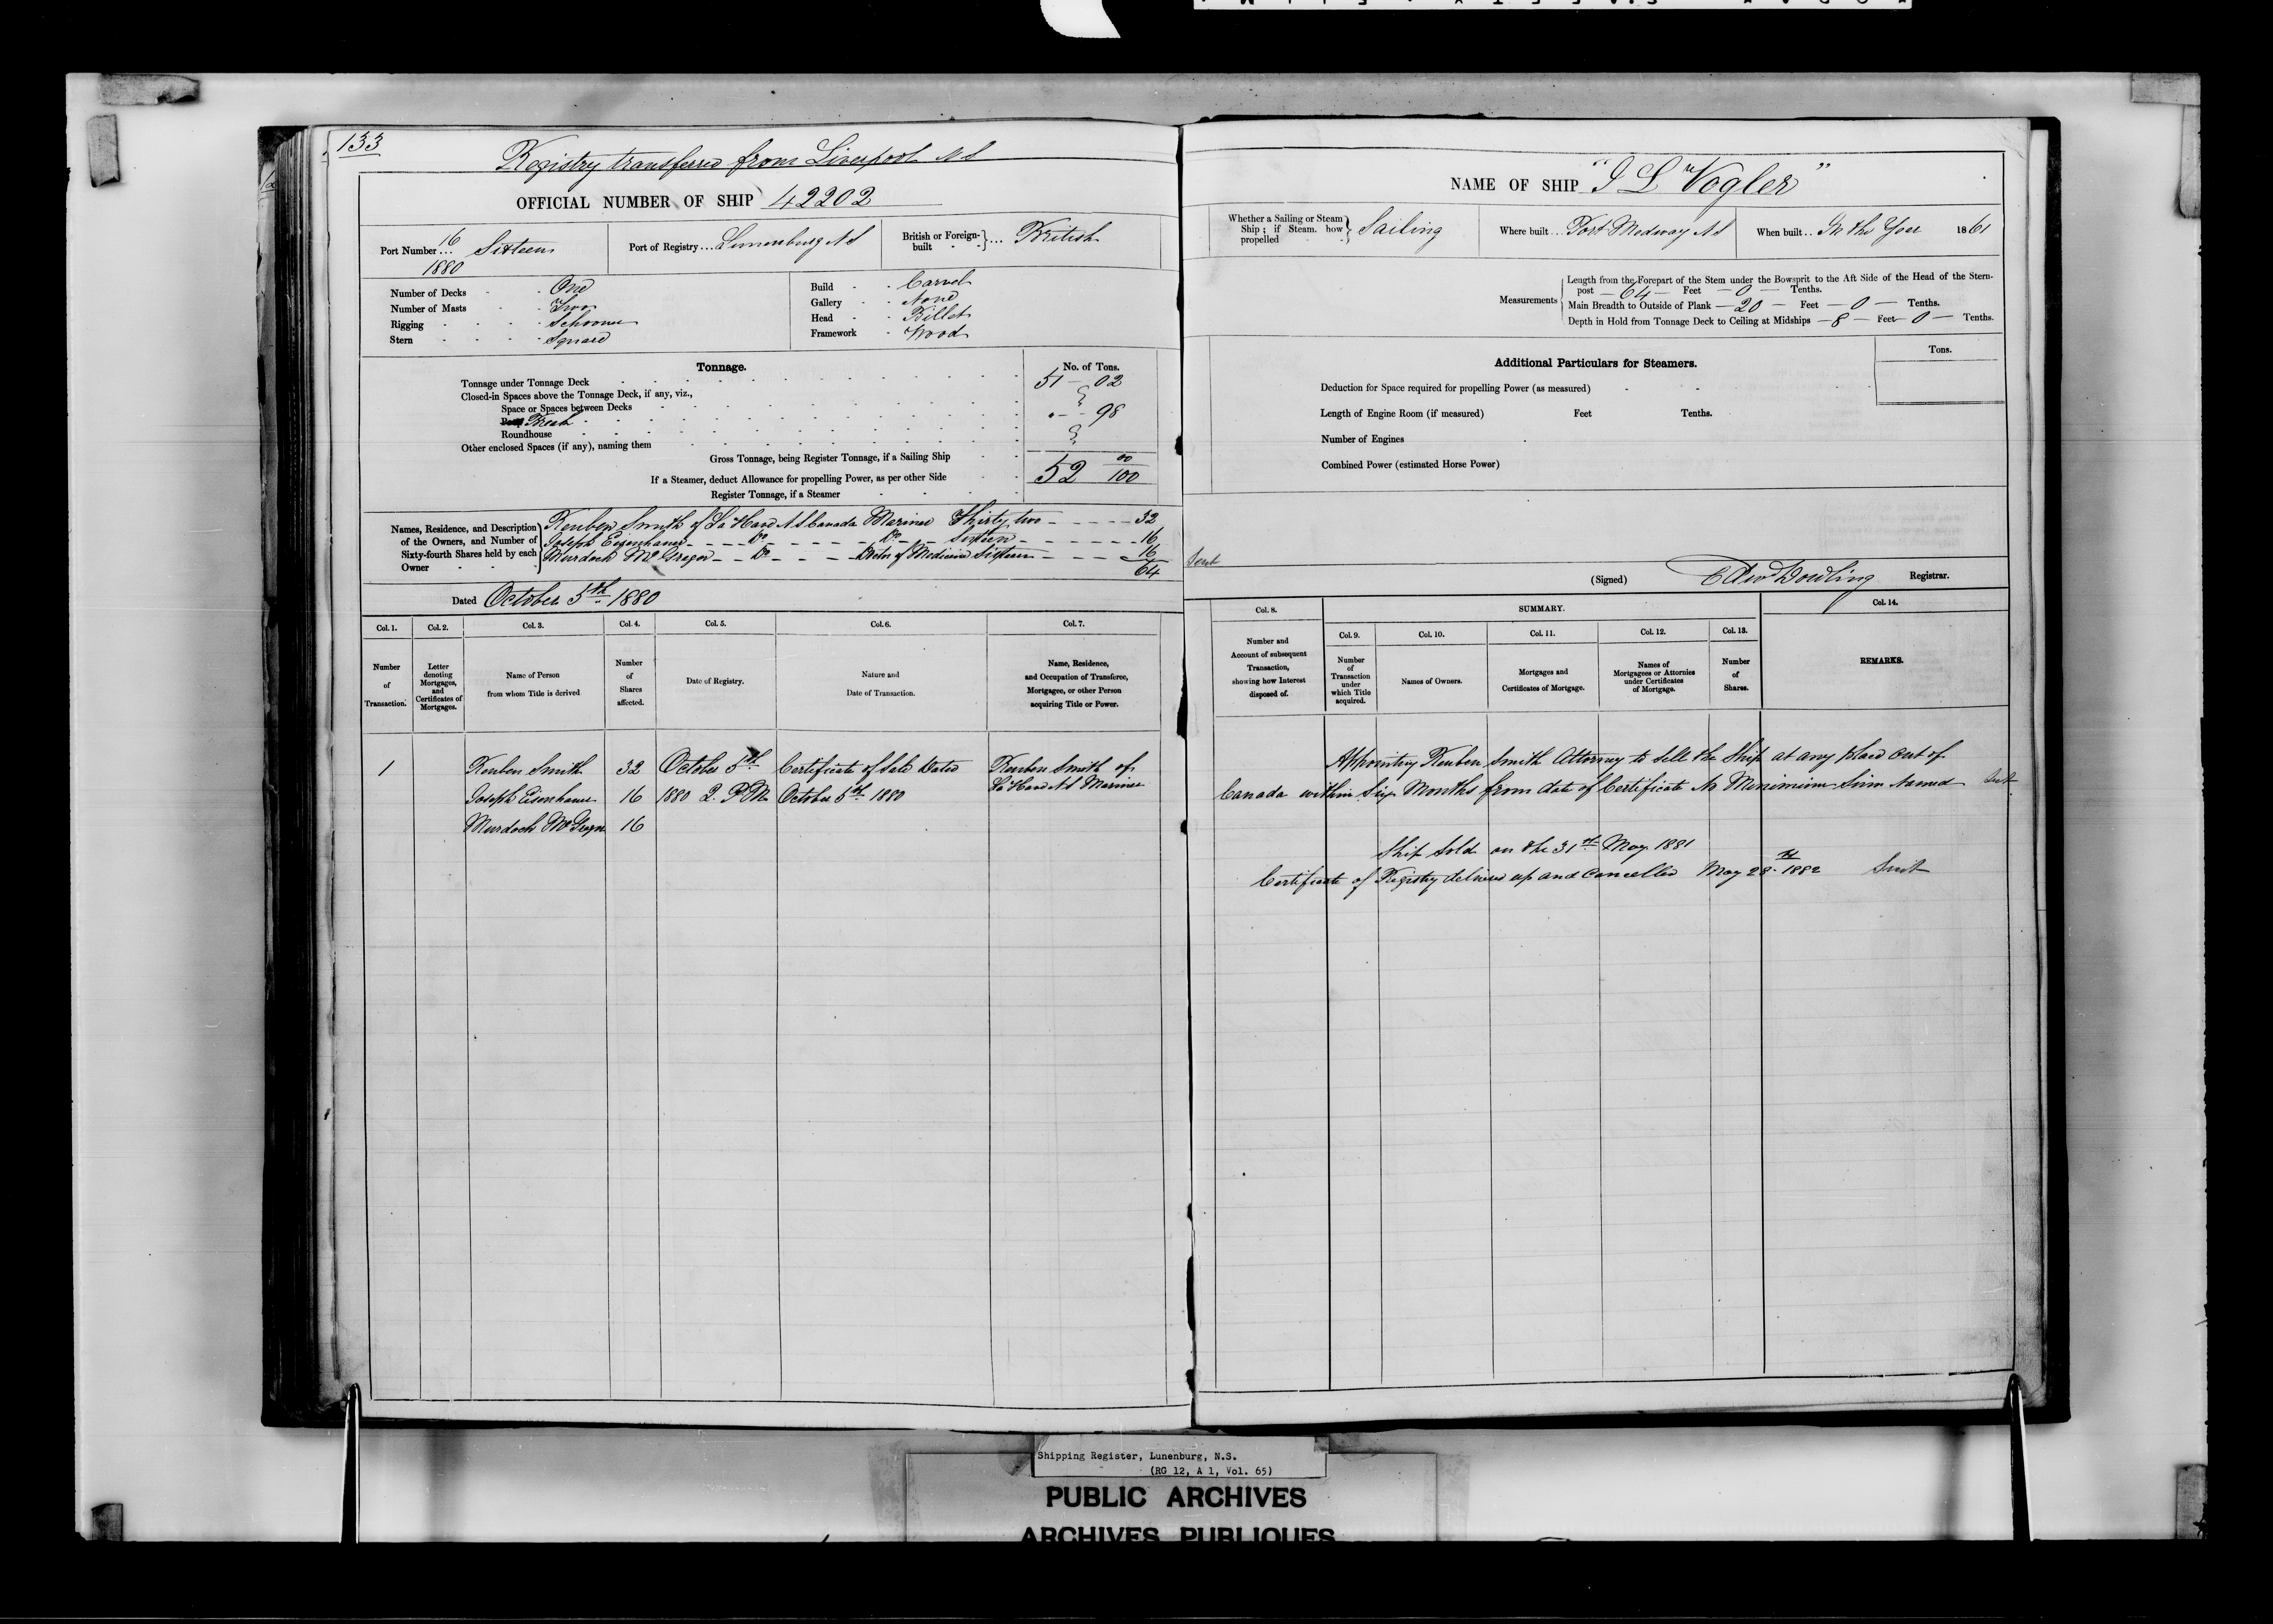 133
Registry transferred from Liverpool N S
OFFICIAL NUMBER OF SHIP 42202
Port Number... 16 Sixteen
1880
Port of Registry... Lunenburg N S
British or Foreign-built ... British
Number of Decks One
Number of Masts Two
Rigging Schooner
Stern Square
Build Carvel
Gallery None
Head Billet
Framework Wood
Tonnage.
No. of Tons.
Tonnage under Tonnage Deck 51 - 02
Closed-in Spaces above the Tonnage Deck, if any, viz.,
Space or Spaces between Decks
Break . - - 98
Roundhouse
Other enclosed Spaces (if any), naming them
Gross Tonnage, being Register Tonnage, if a Sailing Ship
52 00/100
If a Steamer, deduct Allowance for propelling Power, as per other Side
Register Tonnage, if a Steamer
Names, Residence, and Description of the Owners, and Number of Sixty-fourth Shares held by each Owner
Reuben Smith of La Have N S Canada Mariner Thirty two - - - - - 32
Joseph Eisenhauer - - - Do - - - - - Do - - Sixteen - - - - - - 16
Murdoch McGregor - - Do - - - Doctor of Medicine Sixteen - - - - 16
64
Dated October 5th 1880
Col. 1.
Col. 2.
Col. 3.
Col. 4.
Col. 5.
Col. 6.
Col. 7.
Number of Transaction.
Letter denoting Mortgages, and Certificates of Mortgages.
Name of Person from whom Title is derived
Number of Shares affected.
Date of Registry.
Nature and Date of Transaction.
Name, Residence, and Occupation of Transferee, Mortgagee, or other Person acquiring Title or Power.
1 Reuben Smith 32 October 5th Certificate of Sale Dated Reuben Smith of
Joseph Eisenhauer 16 1880 2 P.M. October 5th 1880 La Have N S Mariner
Murdoch McGregor 16
NAME OF SHIP "J L Vogler"
Whether a Sailing or Steam Ship; if Steam, how propelled Sailing
Where built... Port Medway N S
When built.. In the Year 1861
Measurements
Length from the Forepart of the Stem under the Bowsprit to the Aft Side of the Head of the Stern-
post — 64 — Feet — 0 — Tenths.
Main Breadth to Outside of Plank — 20 — Feet — 0 — Tenths.
Depth in Hold from Tonnage Deck to Ceiling at Midships — 8 — Feet — 0 — Tenths.
Additional Particulars for Steamers.
Tons.
Deduction for Space required for propelling Power (as measured)
Length of Engine Room (if measured) Feet Tenths.
Number of Engines
Combined Power (estimated Horse Power)
Sent
(Signed) Edw Dowling Registrar.
Col. 8.
SUMMARY.
Col. 14.
Col. 9.
Col. 10.
Col. 11.
Col. 12.
Col. 13.
Number and Account of subsequent Transaction, showing how Interest disposed of.
Number of Transaction under which Title acquired.
Names of Owners.
Mortgages and Certificates of Mortgage.
Names of Mortgagees or Attornies under Certificates of Mortgage.
Number of Shares.
REMARKS.
Appointing Reuben Smith Attorney to sell the Ship at any place out of
Canada within Six Months from date of Certificate No Minimium Sum Named Sent
Ship Sold on the 31st May 1881
Certificate of Registry delivered up and Cancelled May 28 1882 Sent
Shipping Register, Lunenburg, N.S.
(RG 12, A 1, Vol. 65)
PUBLIC ARCHIVES
ARCHIVES PUBLIQUES